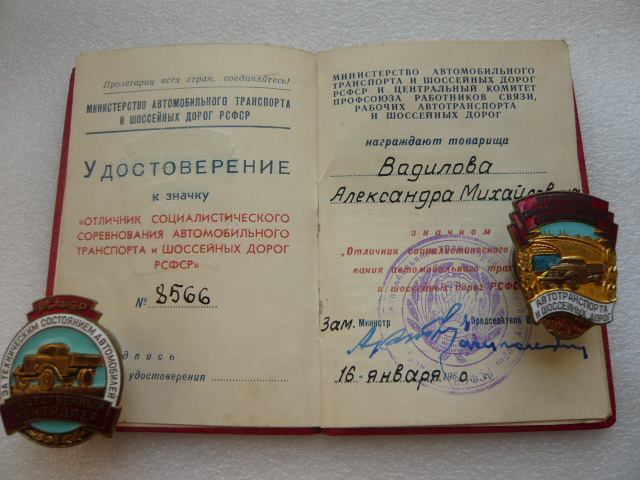 Пролетарии всех стран, соединяйтесь!
МИНИСТЕРСТВО АВТОМОБИЛЬНОГО ТРАНСПОРТА
И ШОССЕЙНЫХ ДОРОГ РСФСР
УДОСТОВЕРЕНИЕ
к значку
«ОТЛИЧНИК СОЦИАЛИСТИЧЕСКОГО
СОРЕВНОВАНИЯ АВТОМОБИЛЬНОГО
ТРАНСПОРТА и ШОССЕЙНЫХ ДОРОГ
РСФСР»
№ 8566
дпись
удостоверения
МИНИСТЕРСТВО АВТОМОБИЛЬНОГО
ТРАНСПОРТА И ШОССЕЙНЫХ ДОРОГ
РСФСР И ЦЕНТРАЛЬНЫЙ КОМИТЕТ
ПРОФСОЮЗА РАБОТНИКОВ СВЯЗИ,
РАБОЧИХ АВТОТРАНСПОРТА
И ШОССЕЙНЫХ ДОРОГ
награждают товарища
Вадилова
Александра Михайловича
значком
„Отличник социалистического
вания автомобильного тран
и шоссейных дорог РСФС
Зам. Министр Председатель
16 января 1960
РСФСР
ЗА ТЕХНИЧЕСКИМ СОСТОЯНИЕМ АВТОМОБИЛЕЙ
ОБЩЕСТВЕННЫЙ
КОНТРОЛЕР
АВТОТРАНСПОРТА
И ШОССЕЙНЫХ ДОРОГ